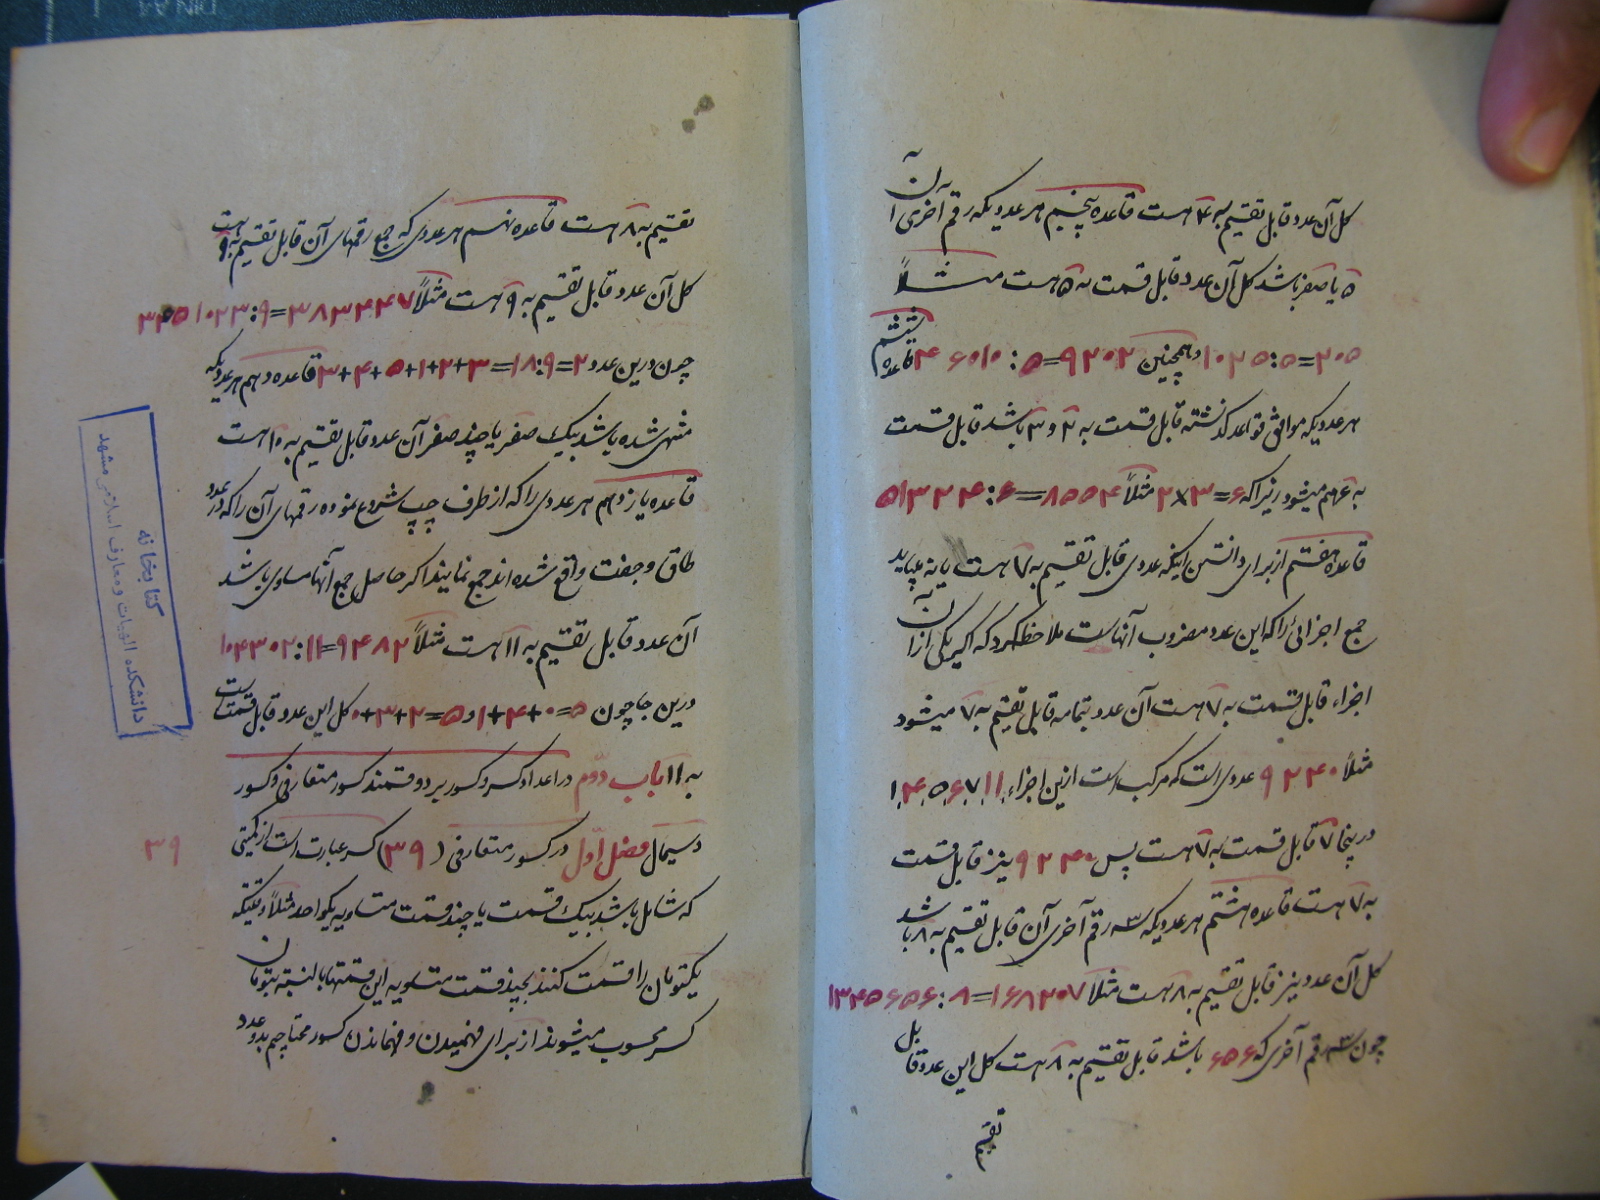 کل آن عدد قابل تقسیم به ۴ هست قاعده پنجم هر عددیکه رقم آخری آن
۵ یا صفر باشد کل آن عدد قابل قسمت به ۵ هست مثلاً
۱۰۲۵:۵=۲۰۵ و همچنین ۴۶۰۱۰:۵=۹۲۰۲ قاعده ششم
هر عددیکه موافق قواعد گذشته قابل قسمت به ۲ و ۳ باشد قابل قسمت
به ۶ هم میشود زیرا که ۶=۳×۲ مثلاً ۵۱۳۲۴:۶=۸۵۵۴
قاعده هفتم از برای دانستن اینکه عددی قابل تقسیم به ۷ هست یا نه میباید
جمیع اجزائی را که این عدد مضروب آنهاست ملاحظه کرد که اگر یکی از آن
اجزاء قابل قسمت به ۷ هست آن عدد بتمامه قابل تقسیم به ۷ میشود
مثلاً ۹۲۴۰ عددی است که مرکب است ازین اجزاء ۱۱,۷,۶,۵,۴,۱
در اینجا ۷ قابل قسمت به ۷ هست پس ۹۲۴۰ نیز قابل قسمت
به ۷ هست قاعده هشتم هر عددیکه ۳ رقم آخری آن قابل تقسیم به ۸ باشد
کل آن عدد نیز قابل تقسیم به ۸ هست مثلاً ۱۳۴۵۶۵۶:۸=۱۶۸۲۰۷
چون ۳ رقم آخری که ۶۵۶ باشد قابل تقسیم به ۸ هست کل این عدد قابل
تقسیم
تقسیم به ۸ هست قاعده نهم هر عددی که جمع رقمهای آن قابل تقسیم به ۹ هست
کل آن عدد قابل تقسیم به ۹ هست مثلاً ۳۴۵۱۰۲۳:۹=۳۸۳۴۴۷
چون درین عدد ۲=۱۸:۹=۳+۲+۱+۵+۴+۳ قاعده دهم هر عددیکه
منتهی شده باشد بیک صفر یا چند صفر آن عدد قابل تقسیم به ۱۰ است
قاعده یازدهم هر عددی را که از طرف چپ شروع نموده رقمهای آن را که در عدد
طاق و جفت واقع شده اند جمع نمایند اگر حاصل جمع آنها مساوی باشد
آن عدد قابل تقسیم به ۱۱ هست مثلاً ۱۰۴۳۰۲:۱۱=۹۴۸۲
درین جا چون ۵=۰+۴+۱ و ۵=۲+۳+۰ کل این عدد قابل قسمت است
به ۱۱ باب دوم در اعداد کسر و کسور بر دو قسمند کسور متعارفی و کسور
دسیمال فصل اول در کسور متعارفی (۳۹) کسر عبارت است از کمیتی
۳۹
که شامل باشد بیک قسمت یا چند قسمت متساویه یکواحد مثلاً وقتیکه
یکتومان را قسمت کنند بچند قسمت متساویه این قسمتها بالنسبه بتومان
کسر محسوب میشوند از برای فهمیدن و فهماندن کسور محتاجیم بدو عدد
کتابخانه
دانشکده الهیات و معارف اسلامی مشهد